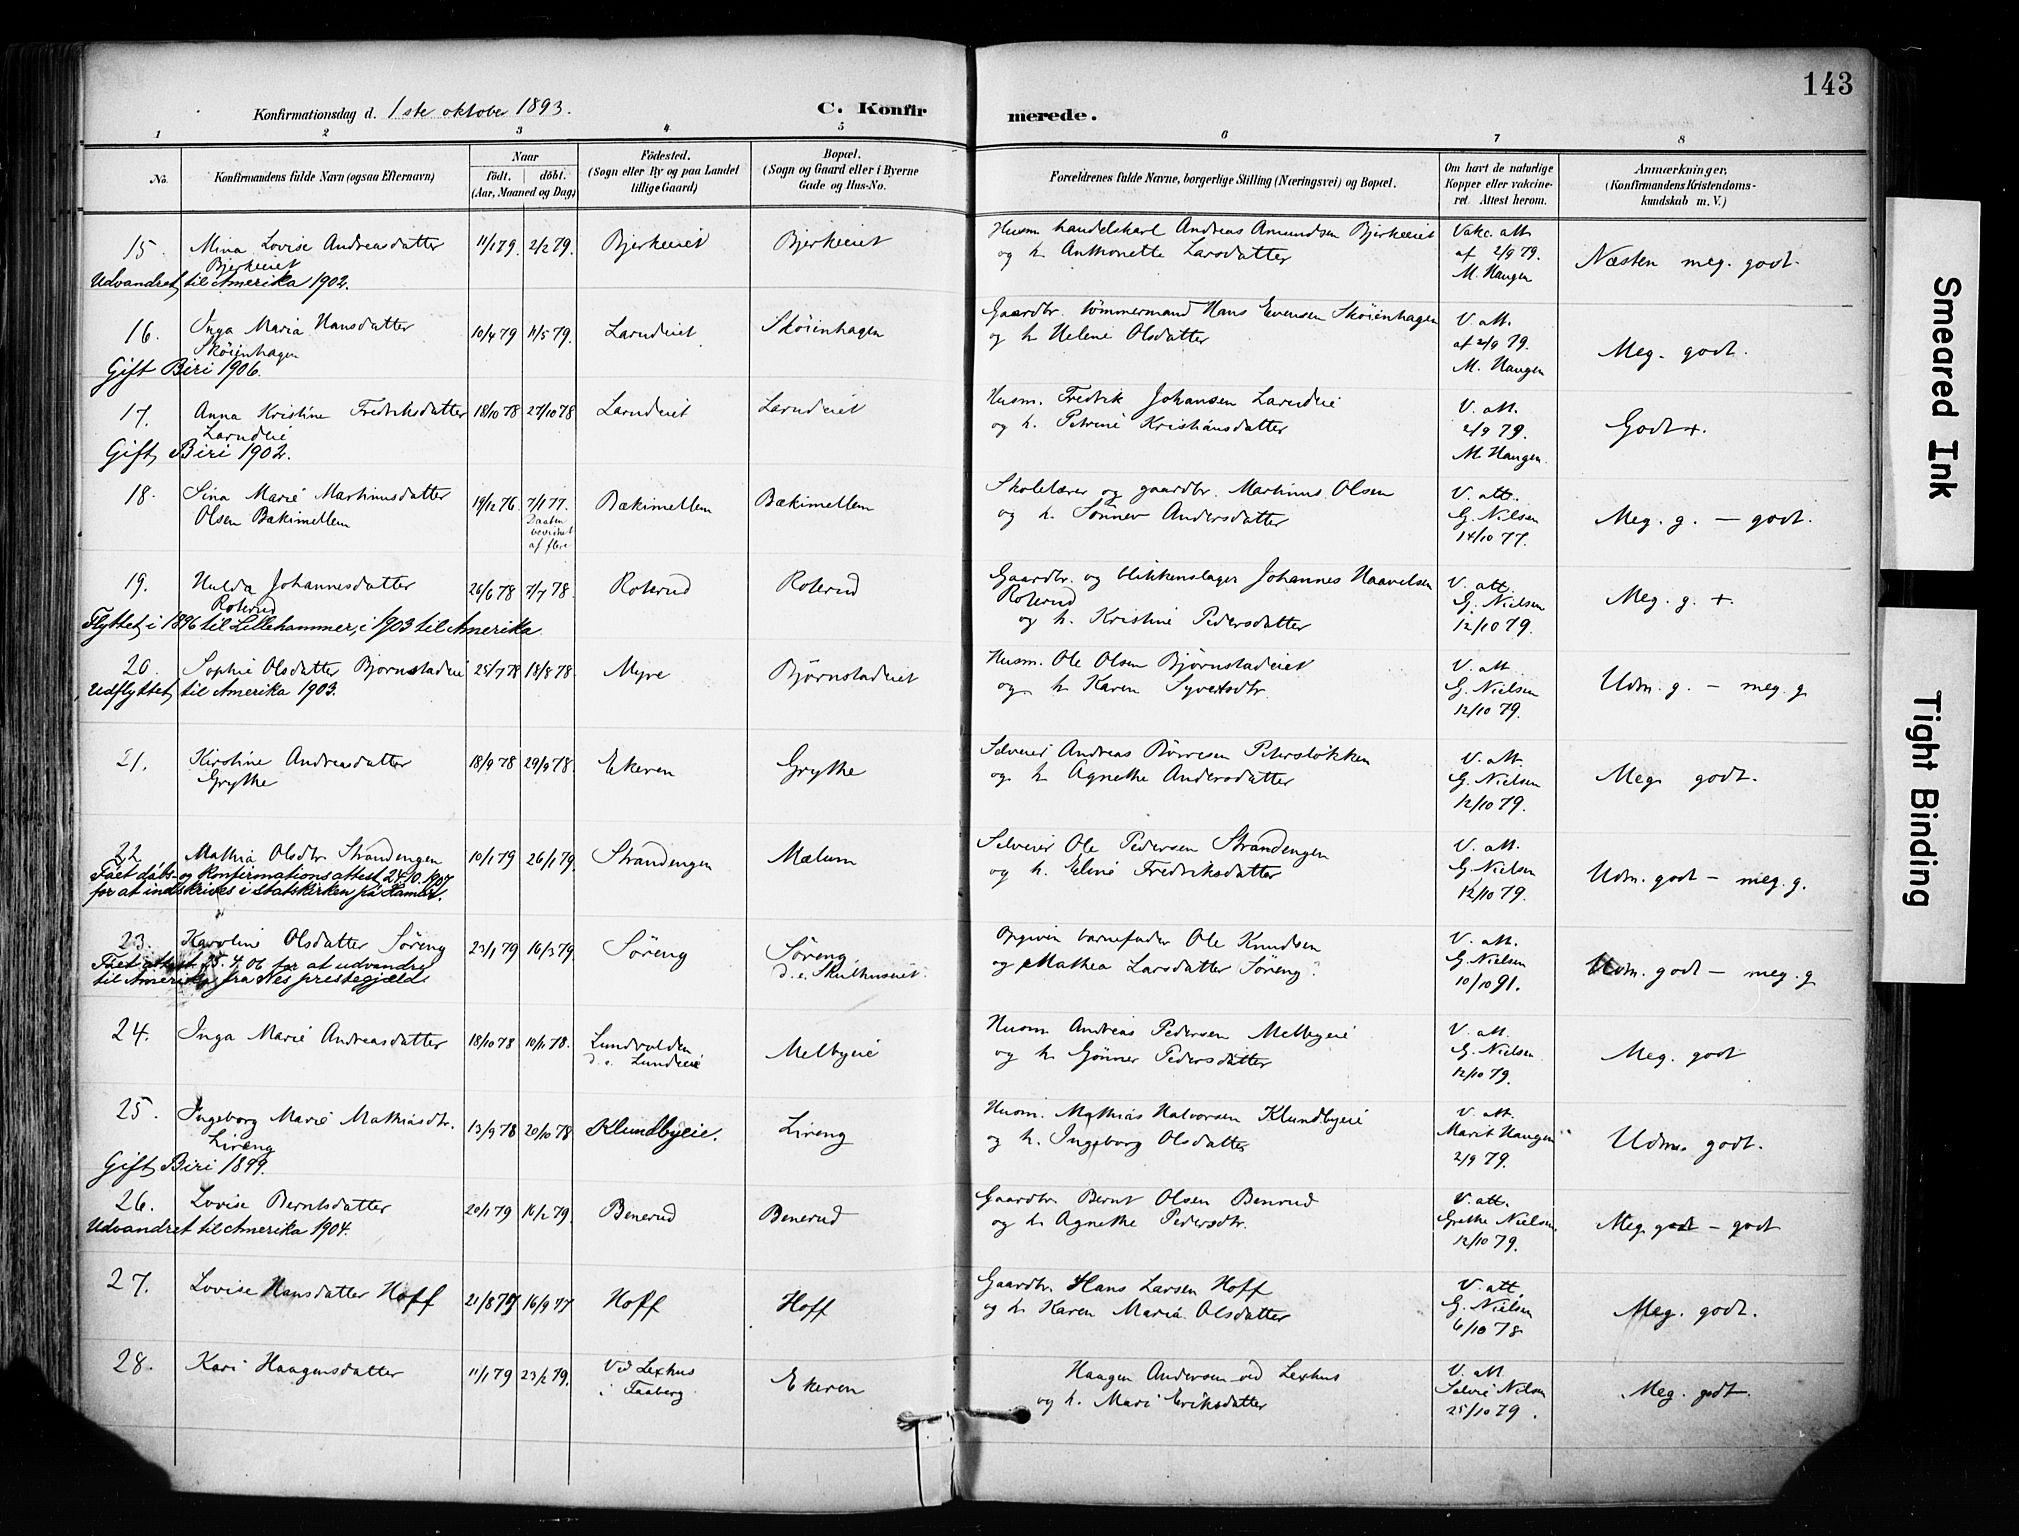 143
Konfirmationsdag d. 1ste oktober 1893.
C. Konfirmerede.
1 2 3 4 5 6 7 8
No.
Konfirmandens fulde Navn (ogsaa Efternavn)
Naar
födt. döbt.
(Aar, Maaned og Dag)
Födested.
(Sogn eller By og paa Landet
tillige Gaard)
Bopæl.
(Sogn og Gaard eller i Byerne
Gade og Hus-No.
Forældrenes fulde Navne, borgerlige Stilling (Næringsvei) og Bopæl.
Om havt de naturlige
Kopper eller vakcine-
ret. Attest herom.
Anmærkninger,
(Konfirmandens Kristendoms-
kundskab m. V.)
15. Mina Lovise Andreasdatter 11/1 79 2/2 79. Bjerkeeiet Bjerkeeiet Husm. handelskarl Andreas Amundsen Bjerkeeiet Vakc. att.
Bjerkeeiet og h. Anthonette Larsdatter af 2/9 79. Næsten meg. godt.
Udvandret til Amerika 1902. M. Haugen
16. Inga Maria Hansdatter 10/4 79 11/5 79. Larudeiet Sköienhagen Gaardbr. tömmermand Hans Evensen Sköienhagen V. att.
Sköienhagen og h. Helene Olsdatter af 2/9 79. Meg. godt.
Gift, Biri 1906. M. Haugen
17. Anna Kristine Fredriksdatter 18/10 78 27/10 78 Larudeiet Larudeiet Husm. Fredrik Johansen Larudeie V. att.
Larudeie og h. Petrine Kristiansdatter 2/9 79. Godt +.
Gift, Biri 1902. M. Haugen.
18. Sina Marie Martinusdatter 19/12 76 7/1 77. Bækimellem Bækimellem Skolelærer og gaardbr. Martinus Olsen V. att.
Olsen Bækimellem Daaben bevidnet af flere og h. Sönnev Andersdatter G. Nielsen Meg. g. - godt.
14/10 77.
19. Hulda Johannesdatter 26/6 78 7/7 78. Roterud Roterud Gaardbr. og blikkenslager Johannes Haavelsen V. att.
Roterud Roterud G. Nielsen Meg. g. +.
Flyttet i 1896 til Lillehammer, i 1903 til Amerika. og h. Kristine Pedersdatter 12/10 79.
20. Sophie Olsdatter Bjørnstadeie 25/7 78 18/8 78. Myre Bjørnstadeiet Husm. Ole Olsen Bjørnstadeiet V. att.
Udflyttet til Amerika 1903. og h. Karen Syvertsdtr. G. Nielsen Udm. g. - meg. g.
12/10 79.
21. Kirstine Andreasdatter 18/9 78 29/9 78. Ekeren Grythe Selveier Andreas Börresen Petersløkken V. att.
Grythe og h. Agnethe Andersdatter G. Nielsen Meg. godt.
12/10 79.
22. Mathia Olsdtr. Strandengen 10/1 79 26/1 79. Strandengen Mælum Selveier Ole Pedersen Strandengen V. att.
Faaet dåbs- og konfirmationsattest og h. Eline Fredriksdatter G. Nielsen Udm. godt - meg. g.
for at indskrives i statskirken på Hamar. 12/10 79.
23. Karoline Olsdatter Söreng 23/1 79 16/3 79. Söreng Söreng Opgiven barnefader Ole Knudsen V. att.
Faaet attest 25.4.06 for at udvandre d. e. Skulhuseiet. og Mathea Larsdatter Söreng. G. Nielsen Udm. godt - meg. g
til Amerika fra Nes prestegjæld. 10/10 91.
24. Inga Marie Andreasdatter 18/10 78 10/11 78. Lundvolden Melbyeie Husm Andreas Pedersen Melbyeie V. att.
d. e. Lundeie og h. Gönner Pedersdatter G. Nielsen Meg. godt
12/10 79.
25. Ingeborg Marie Mathiasdtr. 13/9 78 20/10 78 Klundbyeie. Lireng Husm. Mathias Halvorsen Klundbyeie V. att.
Lireng og h. Ingeborg Olsdatter Marit Haugen Udm. godt.
Gift, Biri 1899. 2/9 79.
26. Lovise Berntsdatter 20/1 79 16/2 79. Benerud Benerud Gaardbr. Bernt Olsen Benrud V. att.
Udvandret til Amerika 1904. og h. Agnethe Pedersdtr. Grethe Nielsen Meg. godt - godt
12/10 79.
27. Lovise Hansdatter Hoff 21/8 77 16/9 77 Hoff Hoff Gaardbr. Hans Larsen Hoff V. att.
og h. Karen Maria Olsdatter G. Nielsen Meg. godt.
6/10 78
28. Kari Haagensdatter 11/1 79 23/2 79. Ved Lexhus Ekeren Haagen Andersen ved Lexhus V. att
i Faaberg. og h. Mari Eriksdatter Solvei Nilsen Meg. godt.
25/10 79.
Smeared Ink
Tight Binding